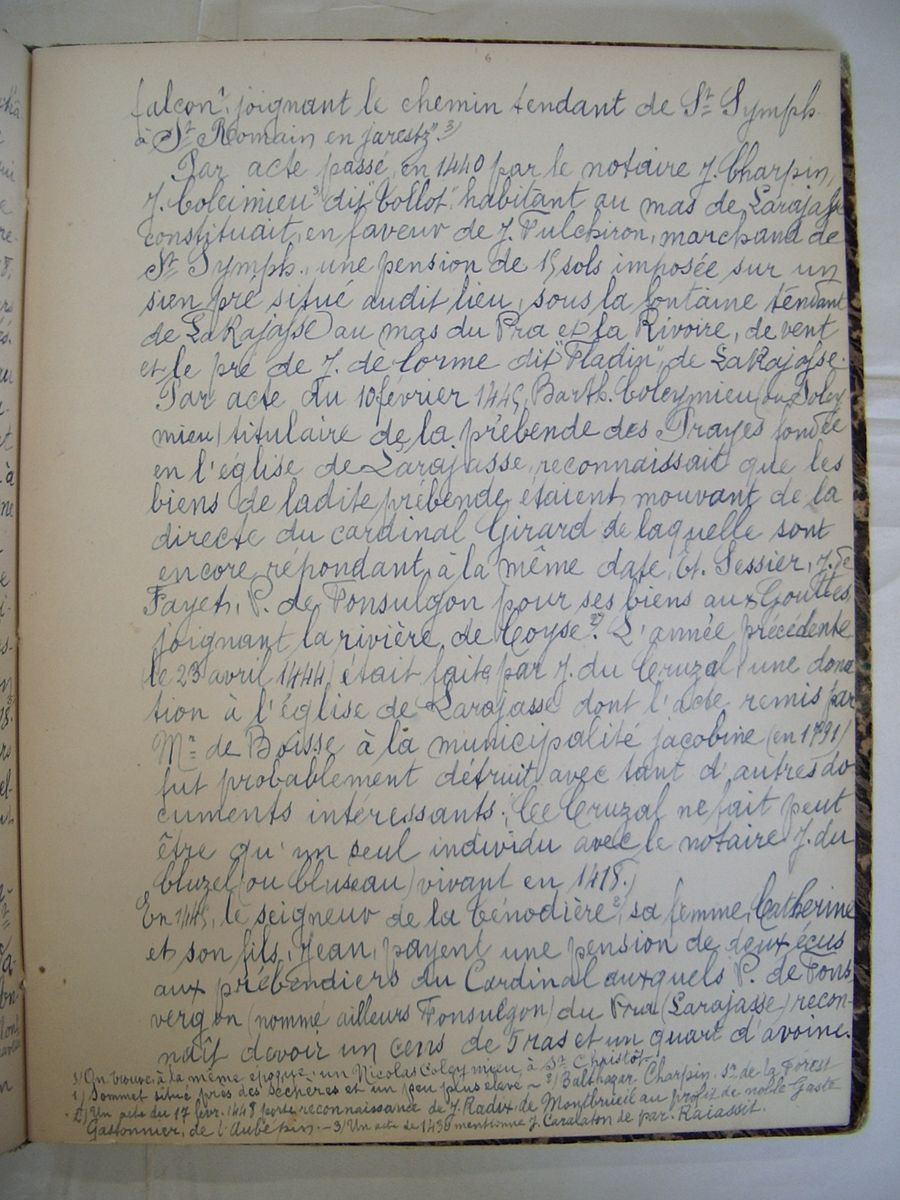 6
falcon", joignant le chemin tendant de St Symph.
à St Romain en Jarestz". 3)
Par acte passé, en 1440 par le notaire J. Charpin,
J. Colcimieu 3) dit "Collot", habitant au mas de Larajasse
constituait, en faveur de J. Fulchiron, marchand de
St Symph., une pension de 15 sols imposée sur un
sien pré situé audit lieu, sous la fontaine tendant
de LaRajasse) au mas du Pra et la Rivoire, de vent
et le pré de J. de Corme dit "Fladin", de LaRajosse.
Par acte du 10 février 1445, Barth. Coleymieu (ou Soley
mieu) titulaire de la prébende des Prayes fondée
en l'église de Larajasse, reconnaissait que les
biens de ladite prébende étaient mouvant de la
directe du cardinal Girard de laquelle sont
encore répondant, à la même date, Et. Sessier, J. de
Fayet, P. de Fonsulgon pour ses biens aux Gouttes
joignant la rivière de Coyse 2). L'année précédente
(le 23 avril 1444) était faite par J. du Cruzal, une dona
tion à l'église de Larajasse dont l'acte remis par
Mr de Boisse à la municipalité jacobine (en 1791)
fut probablement détruit avec tant d'autres do
cuments intéressants. (Ce Cruzal ne fait peut
être qu'un seul individu avec le notaire J. du
Cluzel (ou Cluseau) vivant en 1418.)
En 1445, le seigneur de la Ténodière 2), sa femme, Catherine
et son fils, Jean, payent une pension de deux écus
aux prébendiers du Cardinal auxquels P. de Fons
vergon (nommé ailleurs Fonsulgon) du Prua (Larajasse) recon-
naît devoir un cens de 5 ras et un quart d'avoine.
3) On trouve, à la même époque, un Nicolas Coleymieu, à St Christôt.
1) Sommet situé près des Sechères et un peu plus élevé ~ 2) Balthazar Charpin, Sr de la Forest
2) Un acte du 17 févr. 1445 porte reconnaissance de J. Radix de Montbrieu au profit de noble Gaste
Gastonnier, de l'Aubépin. – 3) Un acte de 1430 mentionne J. Caralaton de par. Raiassit.